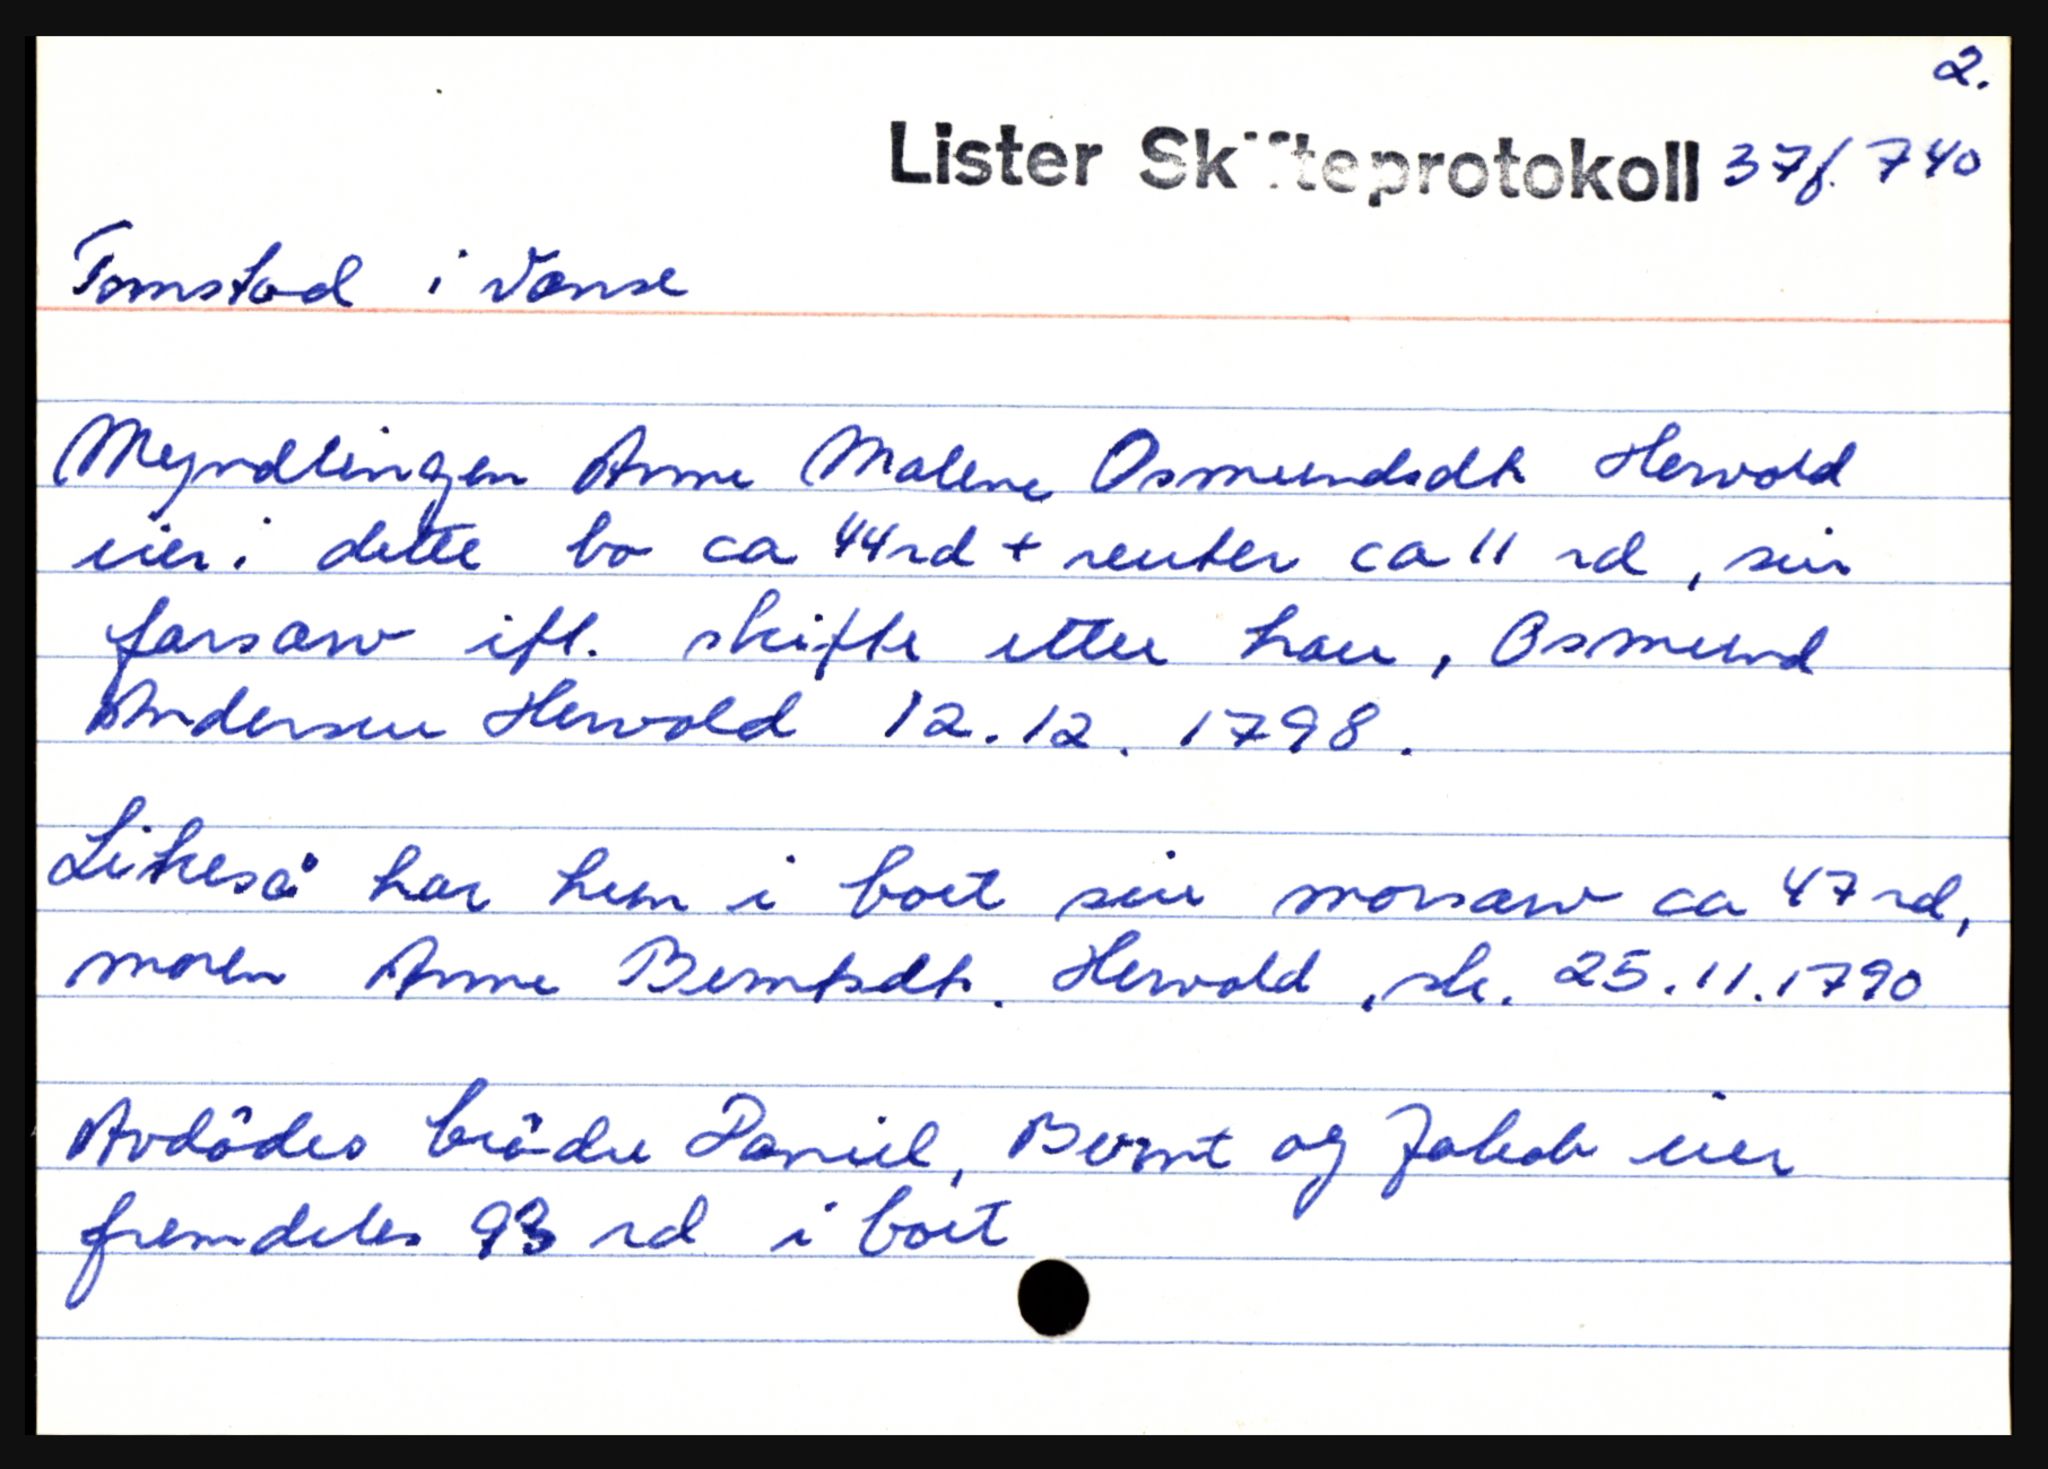 2.
Lister Skifteprotokoll 37 f. 740
Tomstad i Vanse
Myndlingen Anne Malene Osmundsdtr Hervold
eier i dette bo ca 44 rd + renter ca 11 rd, sin
farsarv ifl. skifte etter han, Osmund
Andersen Hervold 12.12.1798.
Likeså har hun i boet sin morsarv ca 47 rd,
moren Anne Berntsdtr. Hervold, sk. 25.11.1790
Avdödes brödre Daniel, Bernt og Jakob eier
fremdeles 93 rd i boet